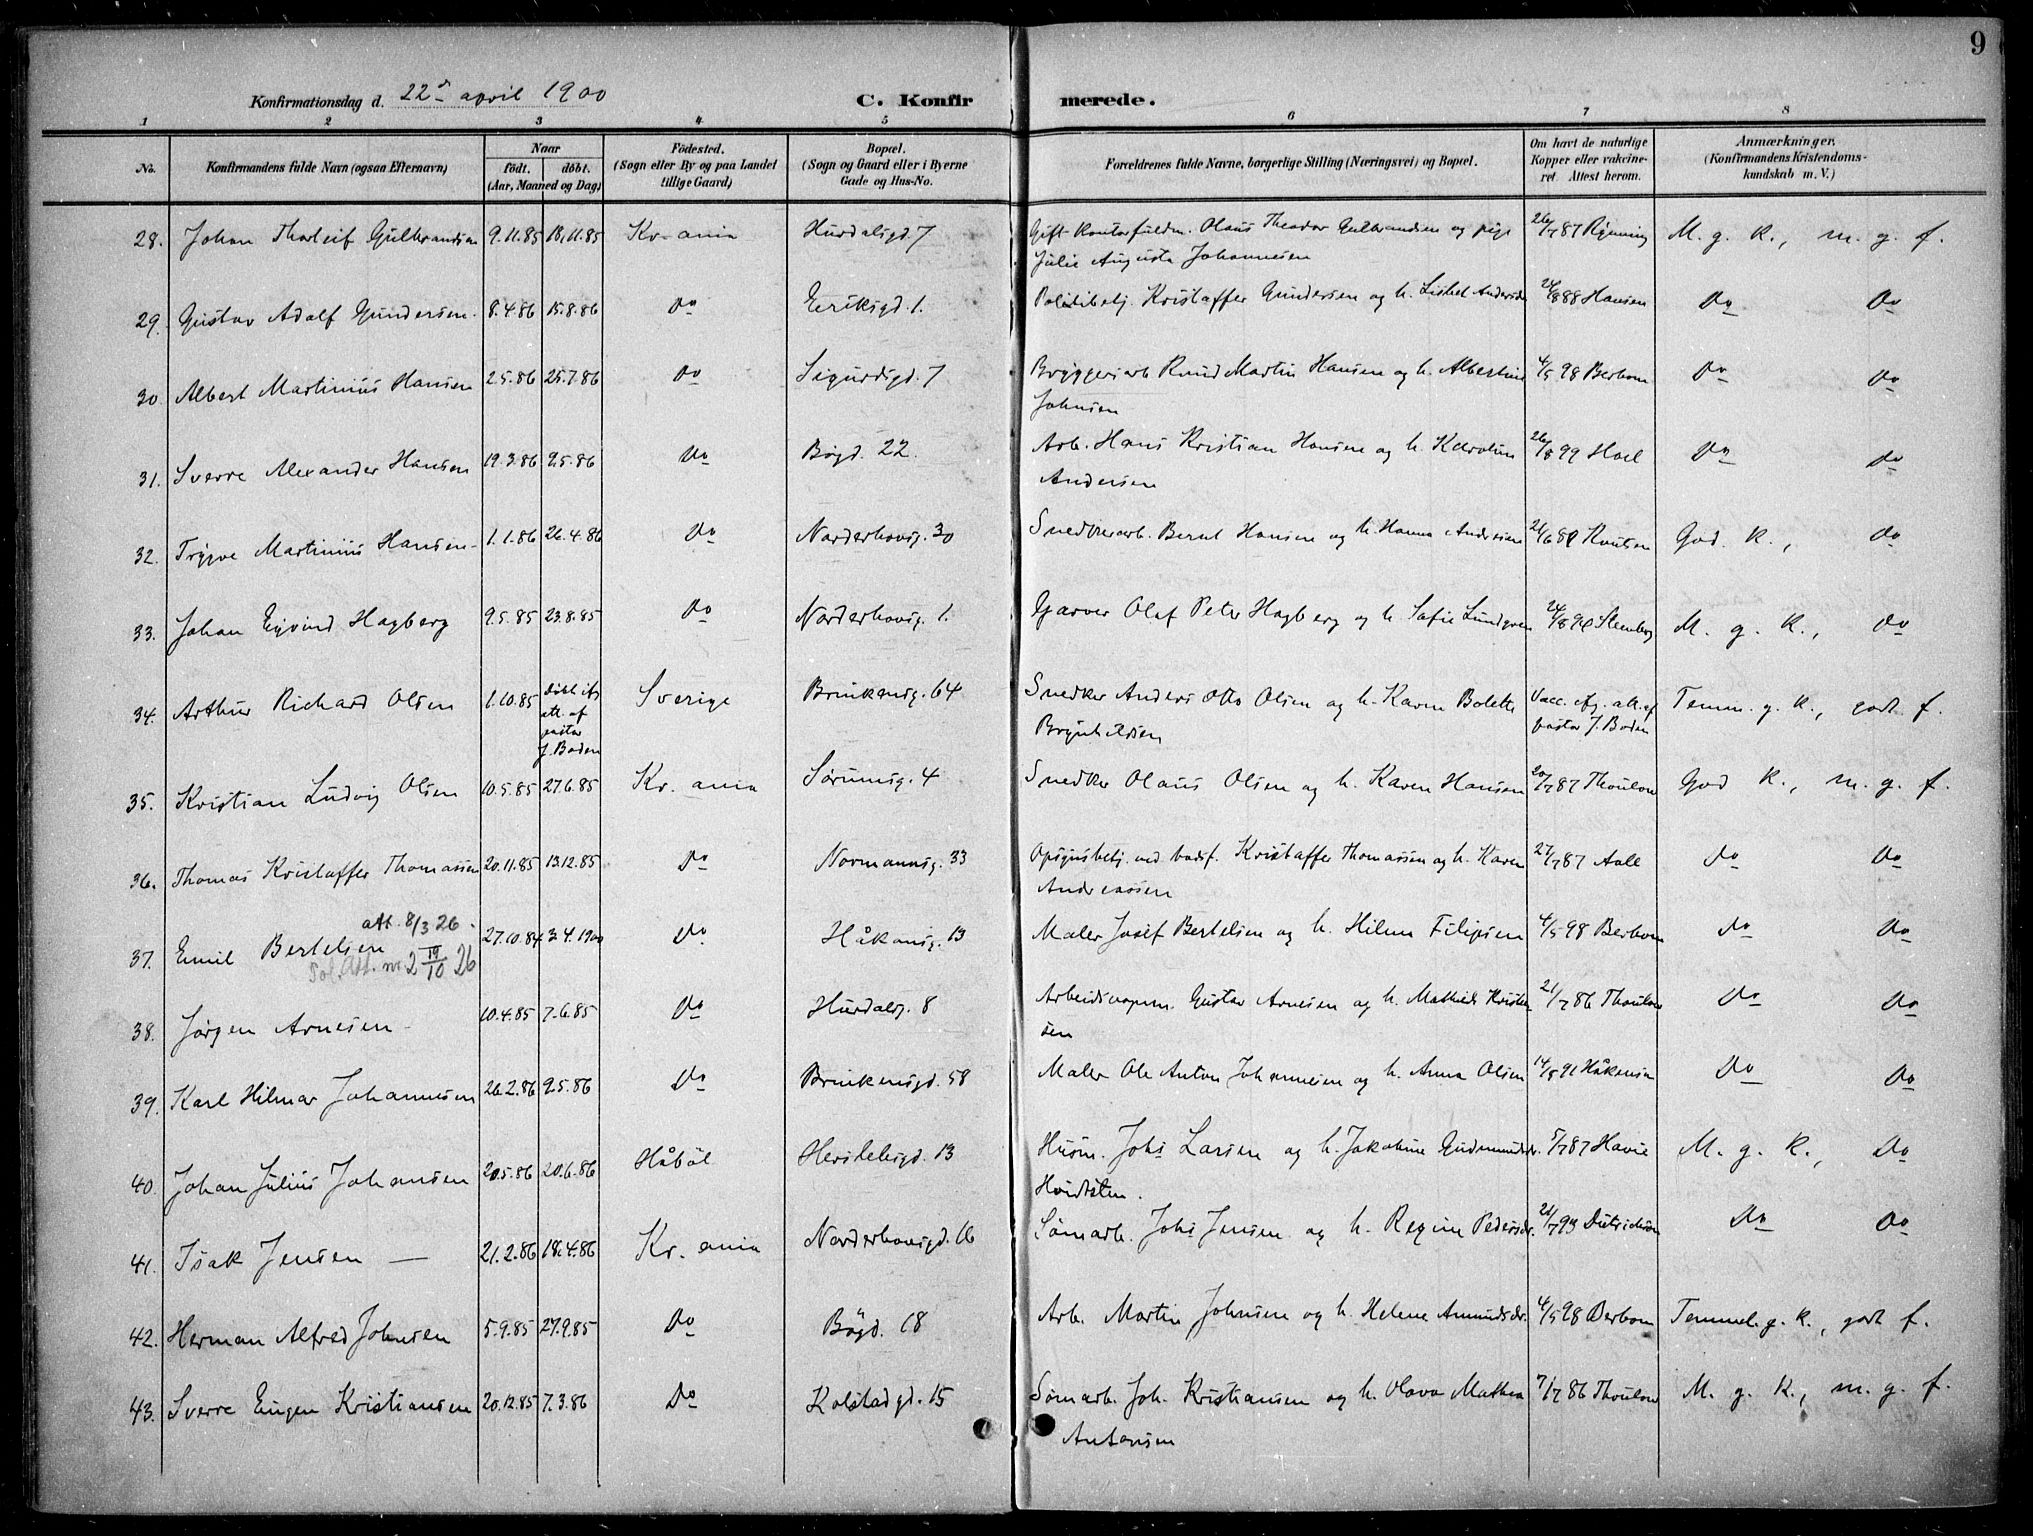 9
Konfirmationsdag d. 22de april 1900 C. Konfir merede.
1 2 3 4 5 6 7 8
No. Konfirmandens fulde Navn (ogsaa Efternavn) Naar født. døbt. (Aar, Maaned og Dag) Fødested. (Sogn eller By og paa Landet tillige Gaard) Bopæl. (Sogn og Gaard eller i Byerne Gade og Hus-No. Forældrenes fulde Navne, borgerlige Stilling (Næringsvei) og Bopæl. Om havt de naturlige Kopper eller vakcineret. Attest herom. Anmærkninger. (Konfirmandens Kristendomskundskab m. V.)
28. Johan Thorleif Gulbrandsen 9.11.85 18.11.85 Kr.ania Hurdalsgd. 7 Gift Kontorfuldm. Hans Theodor Gulbrandsen og pige 26/7 87 Rynning M. g. K., m. g. f.
Julie Augusta Johannesen
29. Gustav Adolf Gundersen 8.4.86 15.8.86 Do Eriksgd. 1. Politibetj. Kristoffer Gundersen og h. Lisbet Andersdr. 28/8 88 Hansen Do Do
30. Albert Martinius Hansen 2.5.86 25.7.86 Do Sigurdsgd. 7 Bryggeriarb. Knud Martin Hansen og h. Albertine 4/5 98 Berbom Do Do
Johnsen
31. Sverre Alexander Hansen 19.3.86 9.5.86 Do Bøgd. 22. Arb. Hans Kristian Hansen og h. Karoline 26/8 99 Hoel Do Do
Andersen
32. Trygve Martinius Hansen 1.1.86 26.4.86 Do Norderhovsg. 30 Snedkerarb. Bernt Hansen og h. Hanna Andresen Knutsen God. K., Do
33. Johan Eyvind Hagberg 9.5.85 23.8.85 Do Norderhovsg. 1. Garver Olaf Peter Hagberg og h. Sofie Lundgren Steenberg M. g. K., Do
34. Arthur Richard Olsen 1.10.85 Døbt ifg. att. af pastor J. Boden Sverige Brinkensg. 64 Snedker Anders Otto Olsen og h. Karen Bolette Vacc. efg. att. af Temm. g. K., godt f.
Brynhildsen pastor J. Boden
35. Kristian Ludvig Olsen 10.5.85 27.6.85 Kr. ania Sørumsg. 4 Snedker Olaus Olsen og h. Karen Hansen 20/7 87 Thoulow God K., m. g. f.
36. Thomas Kristoffer Thomassen 20.11.85 13.12.85 Do Normannsg. 33 Opsynsbetj. ved Kristoffer Thomassen og h. Karen 27/7 87 Aall Do Do
Andreassen
att. 8/3 26.
37. Emil Bertelsen 27.10.84 3.4.1900 Do Håkonsg. 13 Maler Josef Bertelsen og h. Hilma Filipsen 4/5 98 Berbom Do Do
Sol. Att. nr 2 19/10 26
38. Jørgen Arnesen 10.4.85 7.6.85 Do Hurdalsg. 8 Arbeidsformm. Gustav Arnesen og h. Mathilde Kristen- 21/7 86 Thoulow Do Do
sen
39. Karl Hilmar Johannesen 26.2.86 9.5.86 Do Brinkensgd. 58 Maler Ole Anton Johannesen og h. Anna Olsen 14/8 91 Håkonsen Do Do
40. Johan Julius Johansen 20.5.86 20.6.86 Håbøl Herslebsgd. 13 Husm. Johs Larsen og h. Jakobine Gudmundsdr. 5/7 87 Havie M. g. K., Do
Hvidsten.
41. Isak Jensen 21.2.86 18.4.86 Kr. ania Norderhovsgd. 16 Sømarb. Johs Jensen og h. Regine Pedersdr. 21/7 93 Dietrichson Do Do
42. Herman Alfred Johnsen 5.9.85 27.9.85 Do Bøgd. 18 Arb. Martin Johnsen og h. Helene Amundsdr. 4/5 98 Berbom Temmel. g. K., godt f.
43. Sverre Eugen Kristiansen 20.12.85 7.3.86 Do Kolstadgd. 15 Sømarb. Joh. Kristiansen og h. Olava Mathea 7/7 86 Thoulow M. g. K., m. g. f.
Antonsen